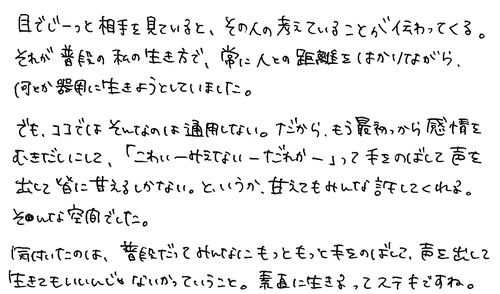 目でじーっと相手を見ていると、その人の考えていることが伝わってくる。
それが普段の私の生き方で、常に人との距離をはかりながら、
何とか器用に生きようとしていました。
でも、ココではそんなのは通用しない。だから、もう最初っから感情を
むきだしにして、「こわいーみえないーだれかー」って手をのばして声を
出して皆に甘えるしかない。というか、甘えてもみんな許してくれる。
そんな空間でした。
気付いたのは、普段だってみんなにもっともっと手をのばして、声を出して
生きてもいいんじゃないかっていうこと。素直に生きるってステキですね。